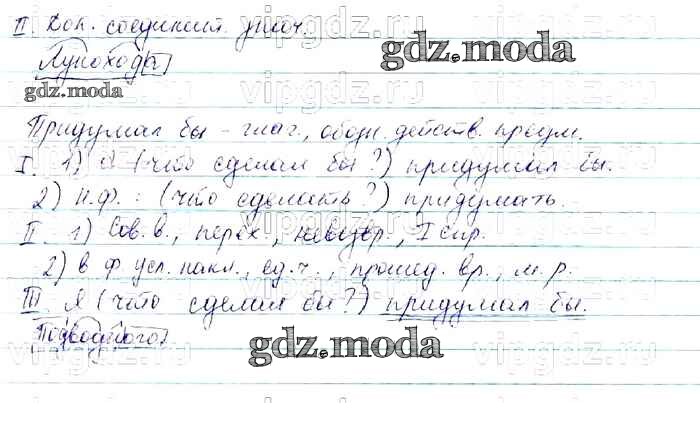 II. Доп. соединит. знач.
Лунохода
Придумал бы - глаг., обозн. действ. предм.
I. 1) Я (что сделал бы?) придумал бы.
2) Н.ф.: (что сделать?) придумать.
II. 1) Сов.в., перех., невозвр., I спр.
2) в ф. усл. накл., ед.ч., прошед. вр., м.р.
III. Я (что сделал бы?) придумал бы.
Подводного
gdz.moda
gdz.moda
gdz.moda
vipgdz.ru